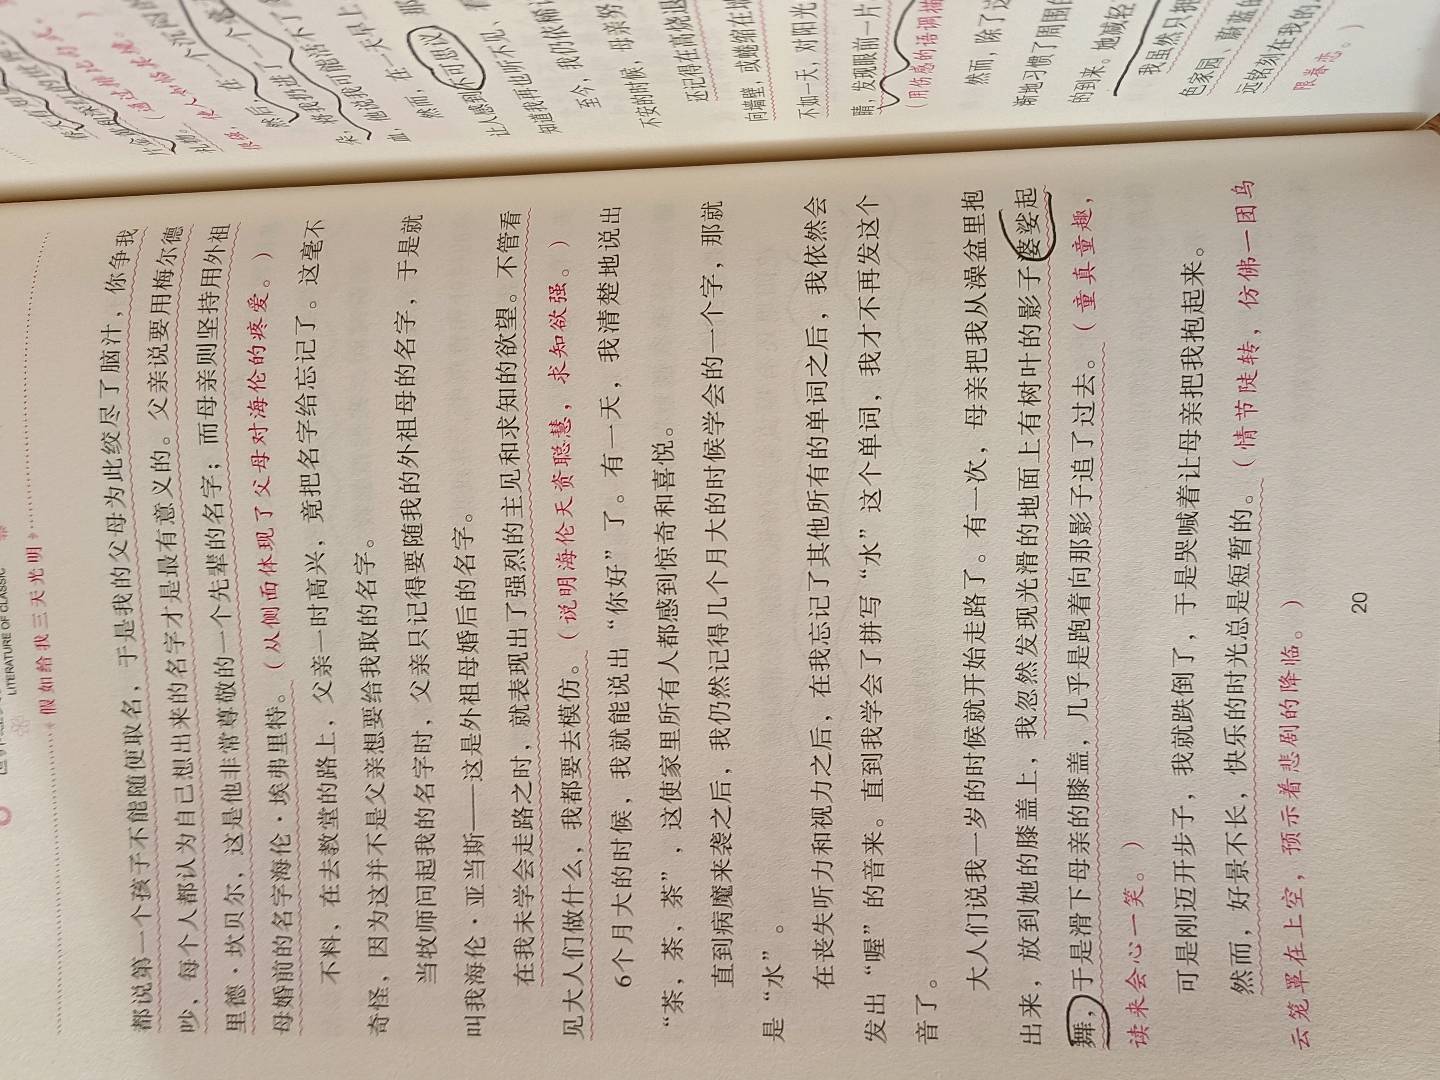 LITERATURE OF CLASSIC
假如给我三天光明
都说第一个孩子不能随便取名，于是我的父母为此绞尽了脑汁，你争我
吵，每个人都认为自己想出来的名字才是最有意义的。父亲说要用梅尔德
里德·坎贝尔，这是他非常尊敬的一个先辈的名字；而母亲则坚持用外祖
母婚前的名字海伦·埃弗里特。（从侧面体现了父母对海伦的疼爱。）
不料，在去教堂的路上，父亲一时高兴，竟把名字给忘记了。这毫不
奇怪，因为这并不是父亲想要给我取的名字。
当牧师问起我的名字时，父亲只记得要随我的外祖母的名字，于是就
叫我海伦·亚当斯——这是外祖母婚后的名字。
在我未学会走路之时，就表现出了强烈的主见和求知的欲望。不管看
见大人们做什么，我都要去模仿。（说明海伦天资聪慧，求知欲强。）
6个月大的时候，我就能说出“你好”了。有一天，我清楚地说出
“茶，茶，茶”，这使家里所有人都感到惊奇和喜悦。
直到病魔来袭之后，我仍然记得几个月大的时候学会的一个字，那就
是“水”。
在丧失听力和视力之后，在我忘记了其他所有的单词之后，我依然会
发出“喔”的音来。直到我学会了拼写“水”这个单词，我才不再发这个
音了。
大人们说我一岁的时候就开始走路了。有一次，母亲把我从澡盆里抱
出来，放到她的膝盖上，我忽然发现光滑的地面上有树叶的影子婆娑起
舞，于是滑下母亲的膝盖，几乎是跑着向那影子追了过去。（童真童趣，
读来会心一笑。）
可是刚迈开步子，我就跌倒了，于是哭喊着让母亲把我抱起来。
然而，好景不长，快乐的时光总是短暂的。（情节陡转，仿佛一团乌
云笼罩在上空，预示着悲剧的降临。）
20
然后，在一个
将我扔进了一个
他说我可能活不了
然而，在一天早上
让人感到不可思议
知道我再也听不见、
至今，我仍依稀
不安的时候，母亲努
还记得在高烧退
向墙壁，或蜷缩在
不如一天，对阳光
睛，发现眼前一片
（用伤感的语调描
然而，除了这
渐地习惯了周围
的到来。她减轻
我虽然只拥
色家园、
远铭刻在我的
限眷恋。）